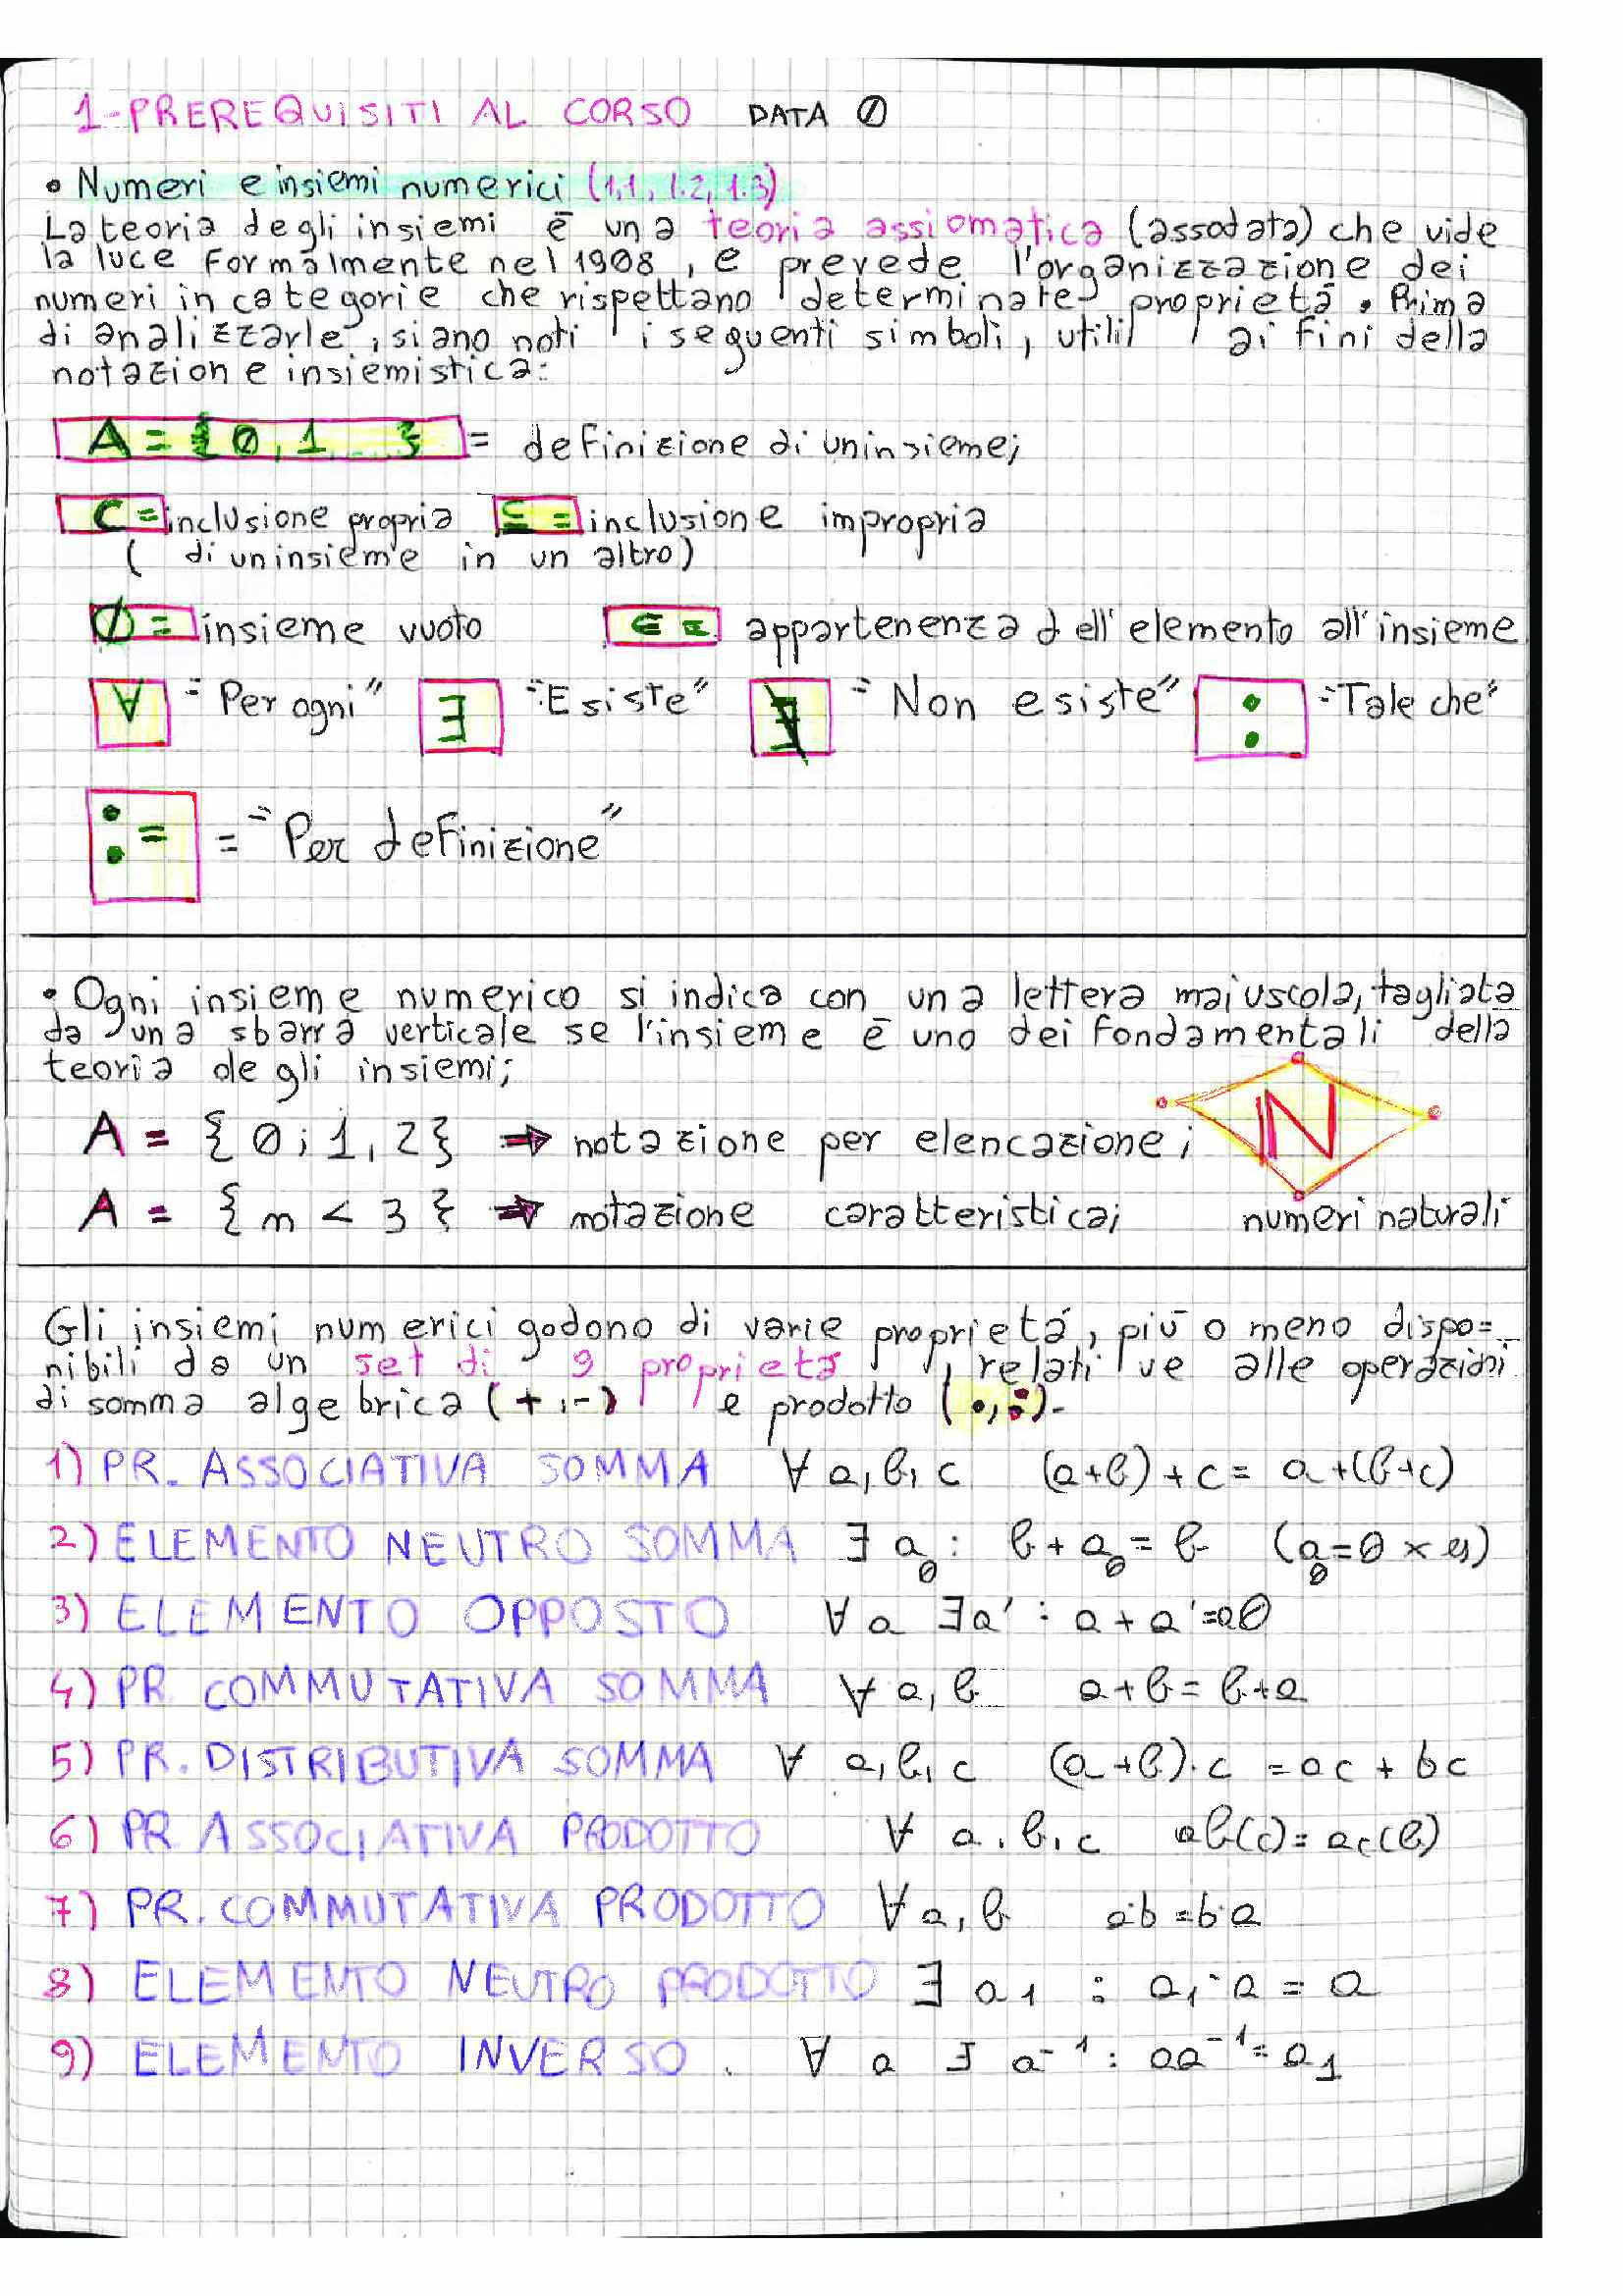 1-PREREQUISITI AL CORSO DATA 0
• Numeri e insiemi numerici (1.1, 1.2, 1.3)
La teoria degli insiemi è una teoria assiomatica (assodata) che vide
la luce formalmente nel 1908, e prevede l'organizzazione dei
numeri in categorie che rispettano determinate proprietà. Prima
di analizzarle, siano noti i seguenti simboli, utili ai fini della
notazione insiemistica:
A = {0, 1 ...} = definizione di un insieme;
⊂ = inclusione propria ⊆ = inclusione impropria
( di un insieme in un altro)
∅ = insieme vuoto ∈ = appartenenza dell'elemento all'insieme
∀ = "Per ogni" ∃ = "Esiste" ∄ = "Non esiste" : = "Tale che"
:= = "Per definizione"
• Ogni insieme numerico si indica con una lettera maiuscola, tagliata
da una sbarra verticale se l'insieme è uno dei fondamentali della
teoria degli insiemi;
A = {0; 1, 2} ⇒ notazione per elencazione; ℕ
A = {n < 3} ⇒ notazione caratteristica; numeri naturali
Gli insiemi numerici godono di varie proprietà, più o meno dispo=
nibili da un set di 9 proprietà, relative alle operazioni
di somma algebrica (+,-) e prodotto (•,:).
1) PR. ASSOCIATIVA SOMMA ∀ a, b, c (a+b)+c = a+(b+c)
2) ELEMENTO NEUTRO SOMMA ∃ a₀ : b + a₀ = b (a₀=0 x es)
3) ELEMENTO OPPOSTO ∀ a ∃a' : a + a' = a0
4) PR COMMUTATIVA SOMMA ∀ a, b a+b = b+a
5) PR. DISTRIBUTIVA SOMMA ∀ a, b, c (a+b)·c = ac + bc
6) PR ASSOCIATIVA PRODOTTO ∀ a, b, c ab(c) = ac(b)
7) PR. COMMUTATIVA PRODOTTO ∀ a, b a·b = b·a
8) ELEMENTO NEUTRO PRODOTTO ∃ a₁ : a₁·a = a
9) ELEMENTO INVERSO. ∀ a ∃ a⁻¹ : aa⁻¹ = a₁